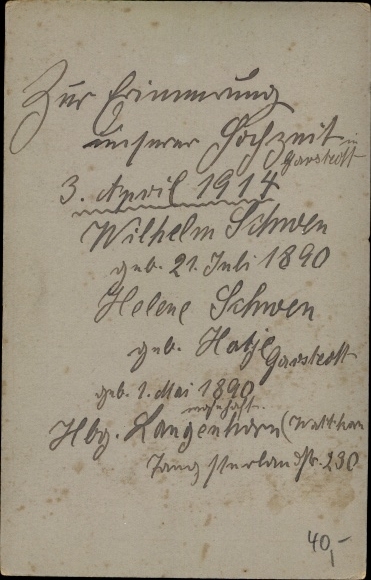 Zur Erinnerung
unserer Hochzeit in
Garstedt
3. April 1914
Wilhelm Schwen
geb. 21. Juli 1890
Helene Schwen
geb. Hatje Garstedt
geb. 1. Mai 1890
wohnhaft
Hbg. Langenhorn
Tangsterlandstr. 230
40,-